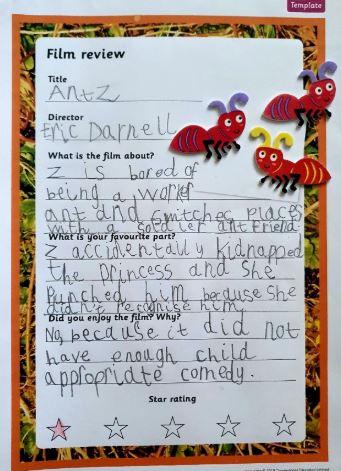 Template
Film review
Title
Antz
Director
Eric Darnell
What is the film about?
Z is bored of
being a worker
ant and switches places
with a soldier ant friend.
What is your favourite part?
Z accidentally kidnapped
the princess and she
punched him because she
didn't recognise him.
Did you enjoy the film? Why?
No, because it did not
have enough child
appropriate comedy.
Star rating